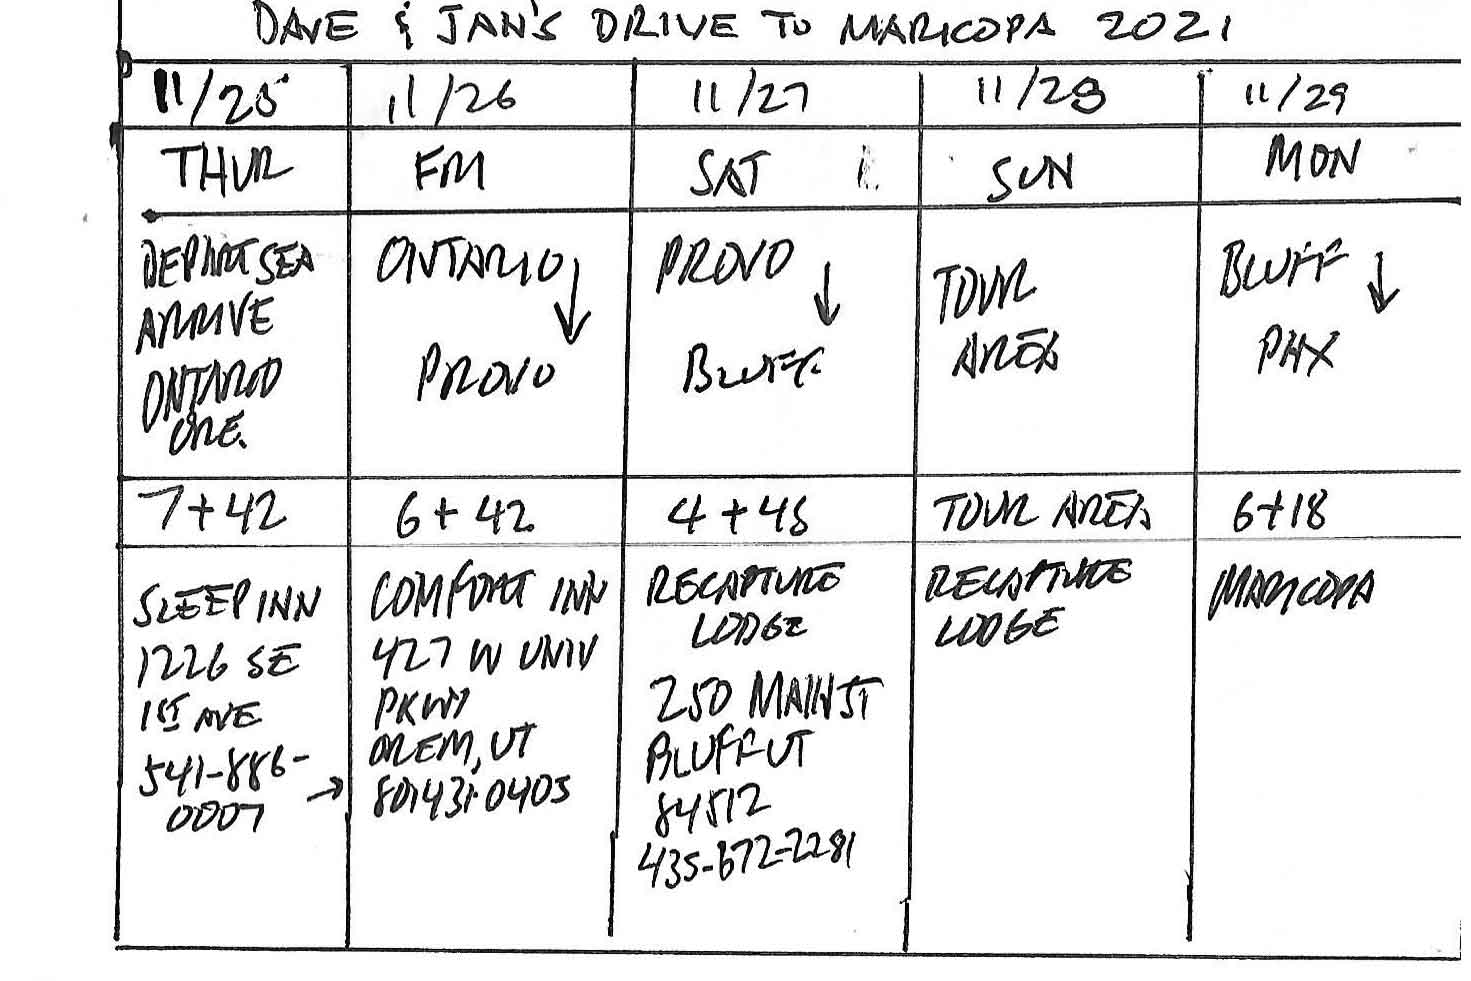 DAVE & JAN'S DRIVE TO MARICOPA 2021
11/25 11/26 11/27 11/28 11/29
THUR FRI SAT SUN MON
DEPART SEA
ARRIVE
ONTARIO
ORE.
ONTARIO ↓
PROVO
PROVO ↓
BLUFF
TOUR
AREA
BLUFF ↓
PHX
7+42 6+42 4+48 TOUR AREA 6+18
SLEEP INN
1226 SE
1ST AVE
541-886-
0007 →
COMFORT INN
427 W UNIV
PKWY
OREM, UT
RECAPTURE
LODGE
250 MAIN ST
BLUFF UT
84512
435-672-2281
RECAPTURE
LODGE
MARICOPA